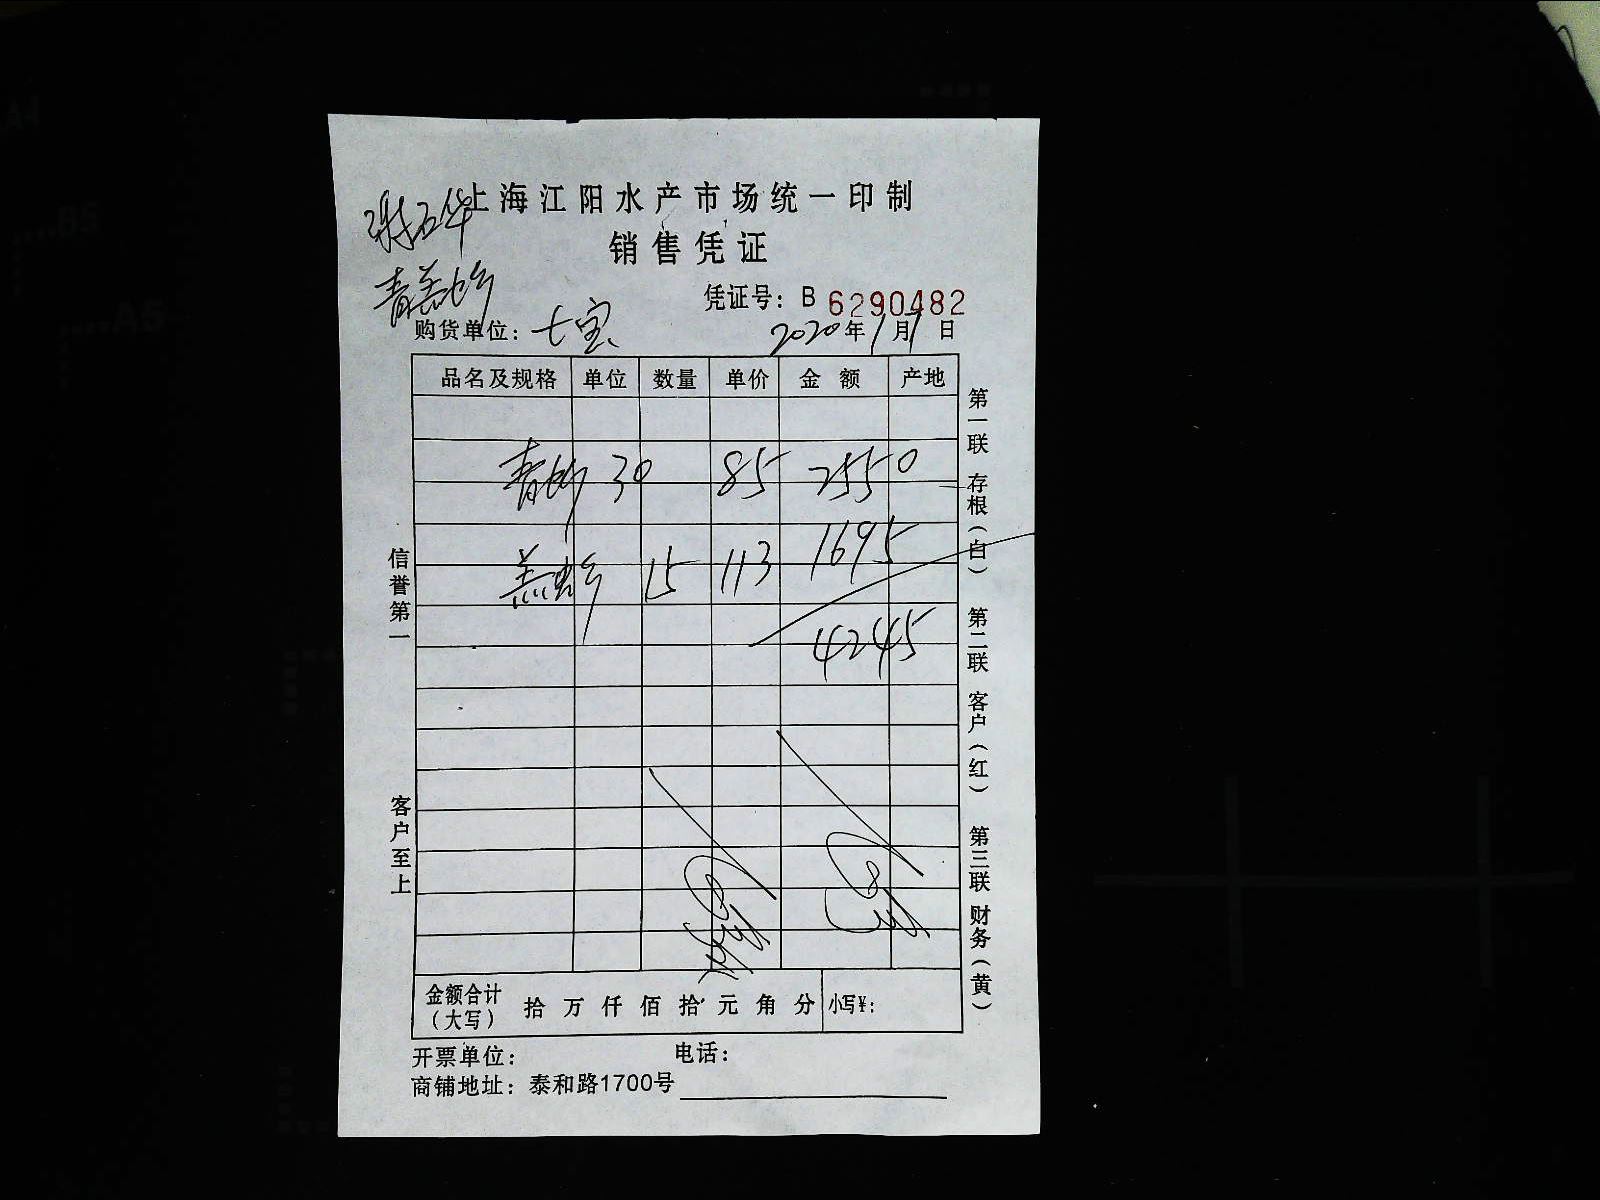 上海江阳水产市场统一印制
销售凭证
凭证号：B 6290482
购货单位：七宝 2020年1月1日
品名及规格 单位 数量 单价 金额 产地
青 30 85 2550
羔 15 113 1695
4245
金额合计（大写） 拾 万 仟 佰 拾 元 角 分 小写¥：
开票单位： 电话：
商铺地址：泰和路1700号
信誉第一
客户至上
第一联 存根（白）
第二联 客户（红）
第三联 财务（黄）